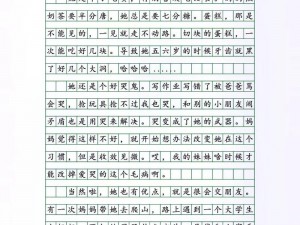 奶茶要半分唐，她总是要七分糖。蛋糕，那是
不能见的，一见，就是走不动路。切块的蛋糕，一
次能吃好几块。导致她五六岁的时候牙齿就黑
了好几个大洞，哈哈哈......
她还是个好哭鬼。写作业写错了被爸爸骂
会哭，抢玩具抢不过我也哭，和别的小朋友闹
矛盾也是用哭来解决。哭变成了她的武器。妈
妈觉得这样不好，就开始想办法改变她在这个
习惯，但是收效见微。哎，我的妹妹啥时候才
能改掉爱哭的这个毛病啊。
当然啦，她也有优点，就是很会交朋友。
有一次妈妈带她去爬山，路上遇到一个大学生